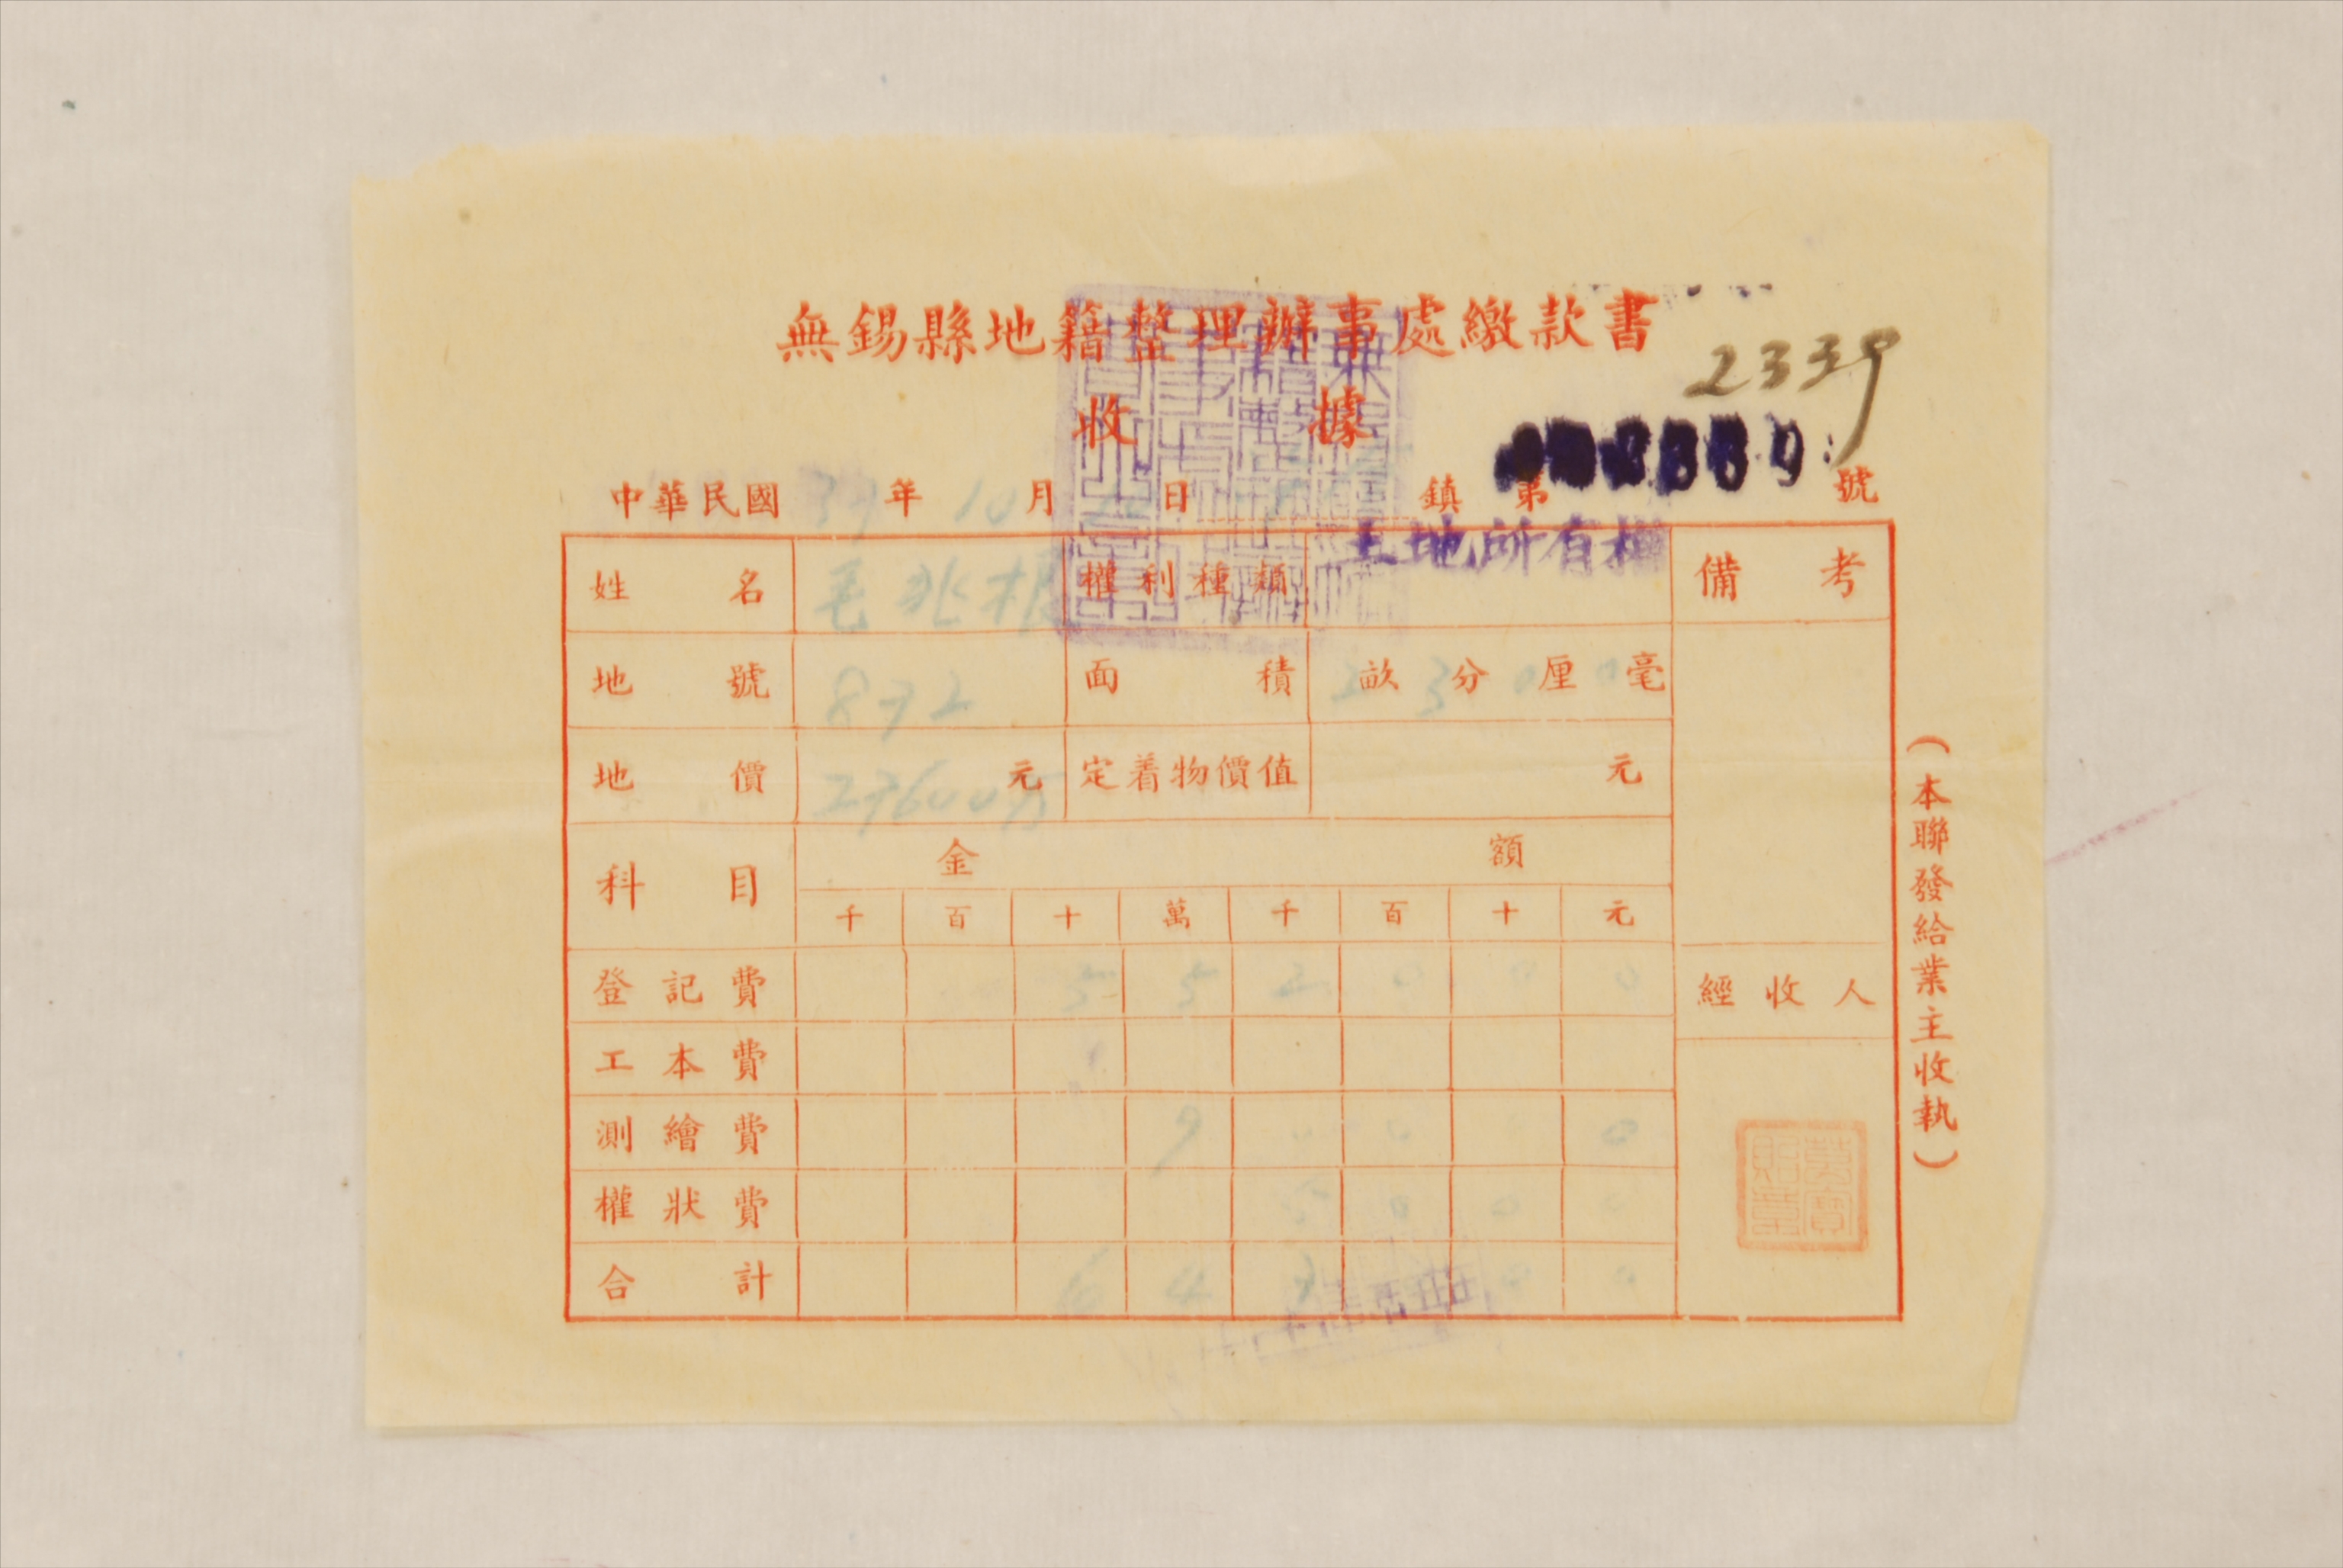 無錫縣地籍整理辦事處繳款書
2339
收據
中華民國 37 年 10 月 日 鎮 第 號
姓名 毛兆根 權利種類 土地所有權 備考
地號 872 面積 2 畝 3 分 0 厘 0 毫
地價 27600万 元 定着物價值 元
科目 金額
千 百 十 萬 千 百 十 元
登記費 5 5 2 0 0 0 經收人
工本費
測繪費 9 0 0 0 0
權狀費 5 0 0 0
合計 6 4 7 0 0
(本聯發給業主收執)